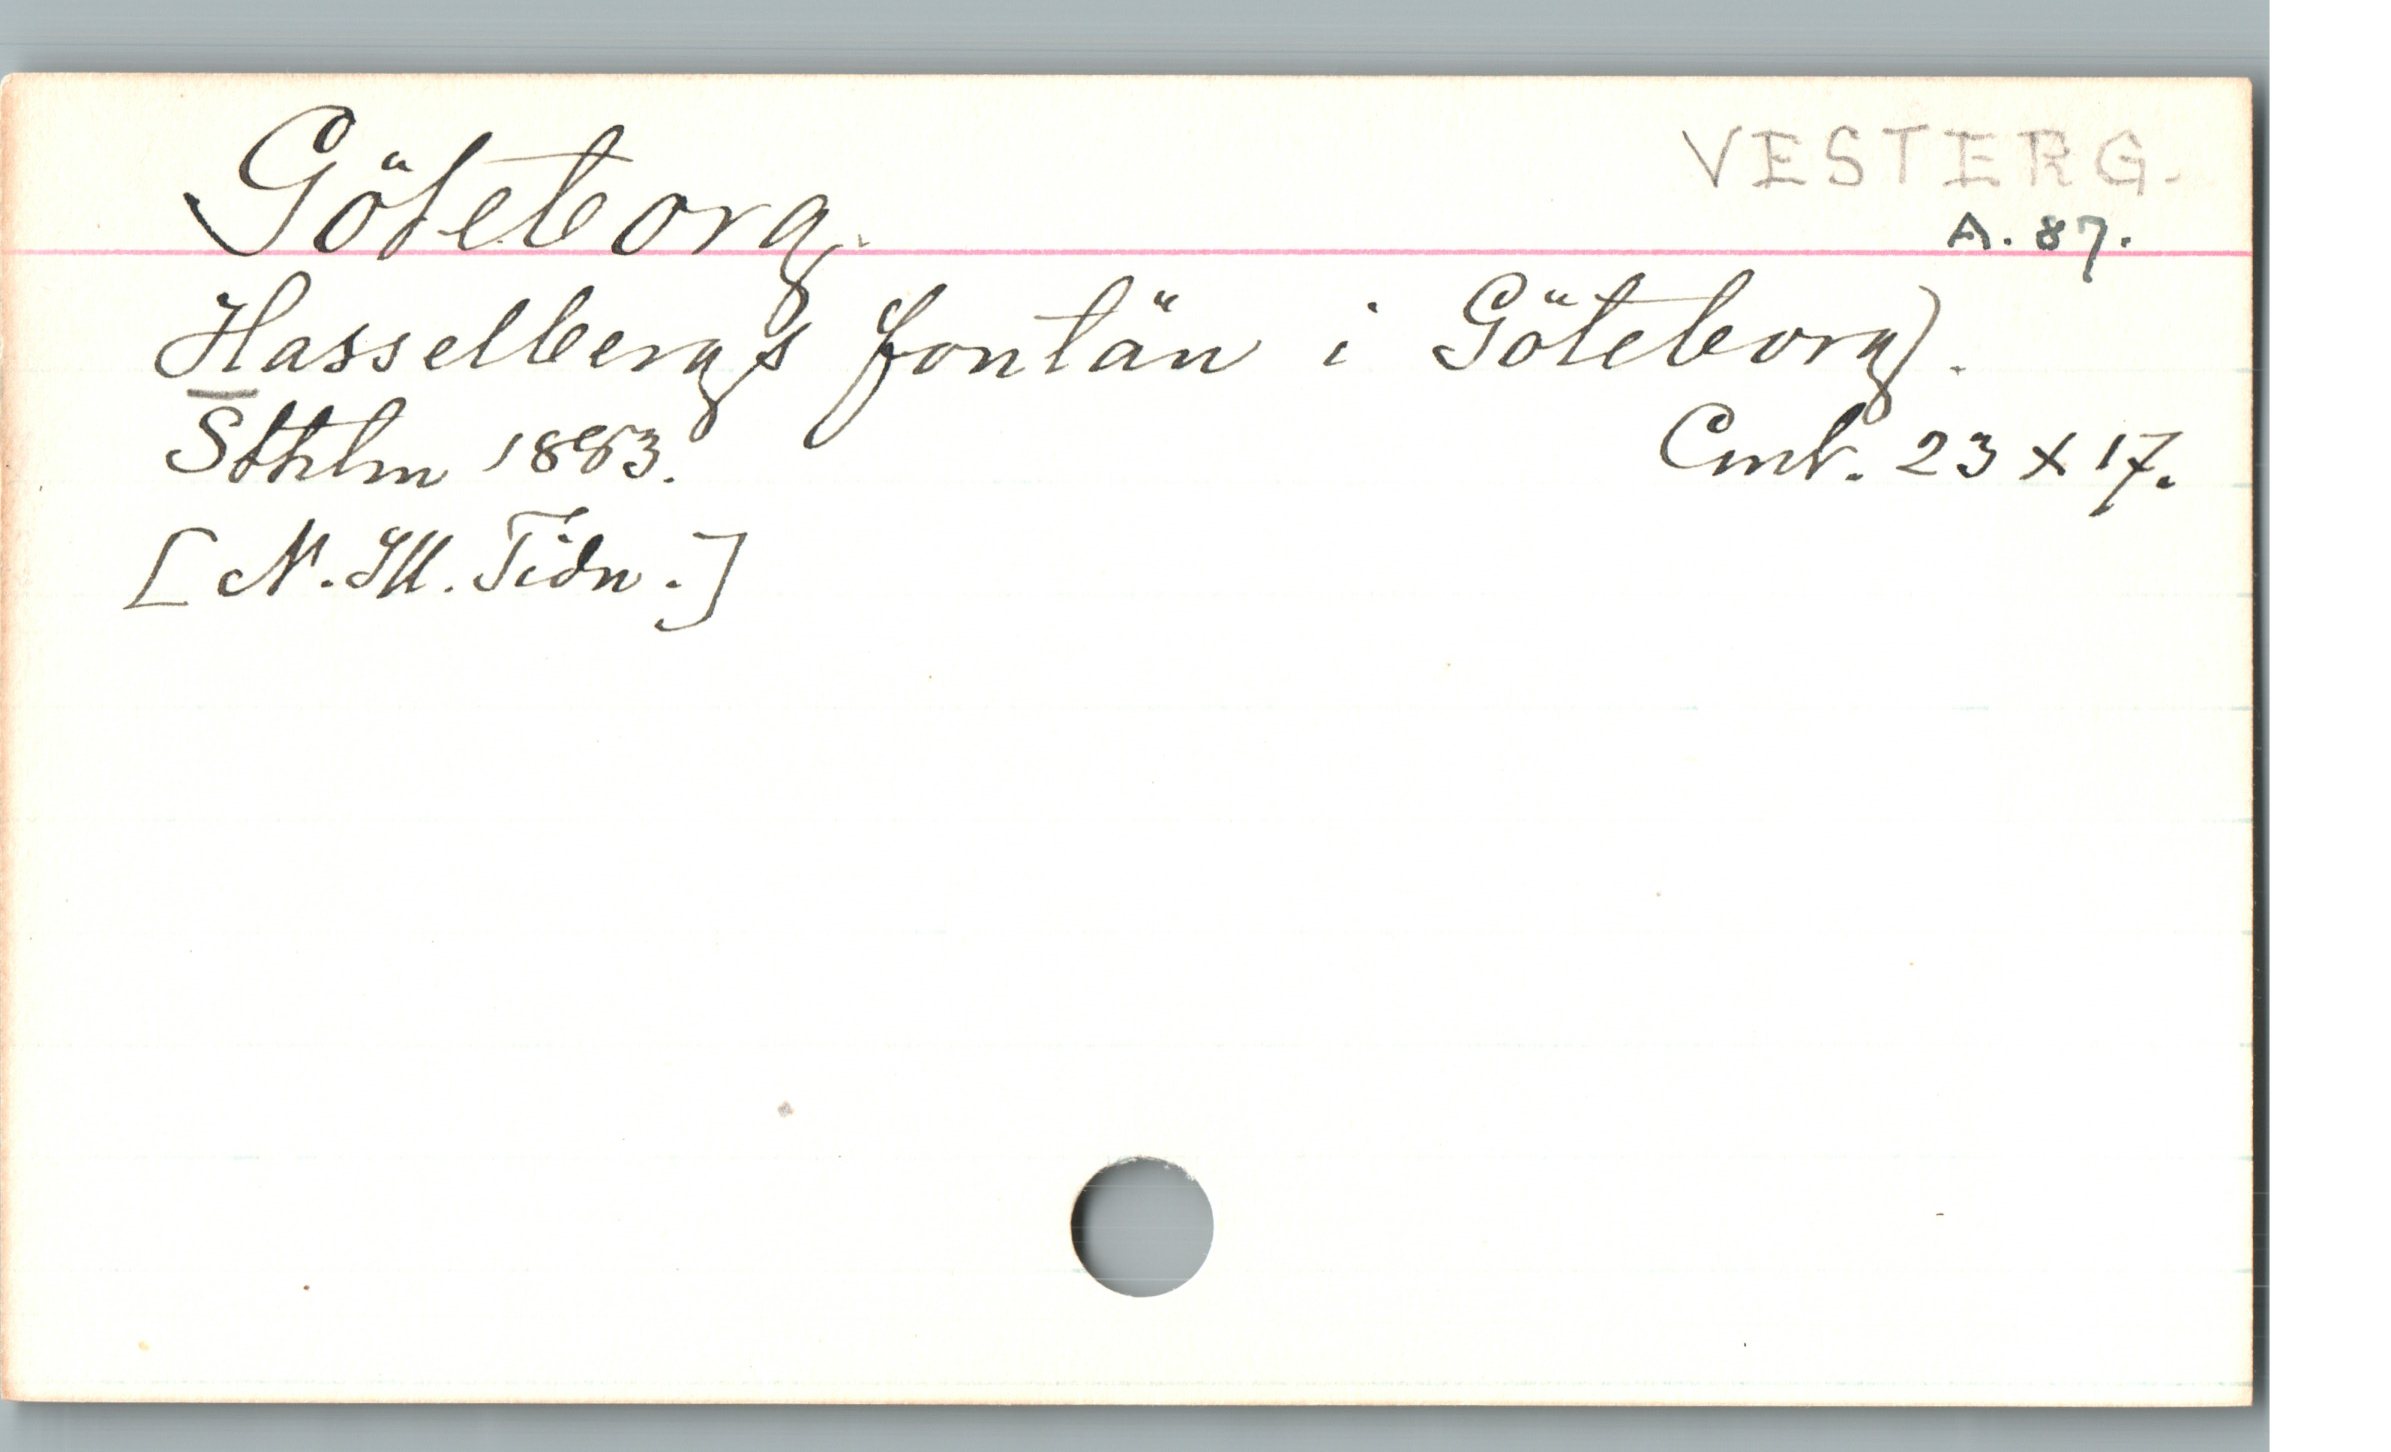 Göteborg.
VESTERG.
A. 87.
Hasselbergs fontän i Göteborg.
Sthlm 1883.
Cmtr. 23 x 17.
[N. Ill. Tidn.]